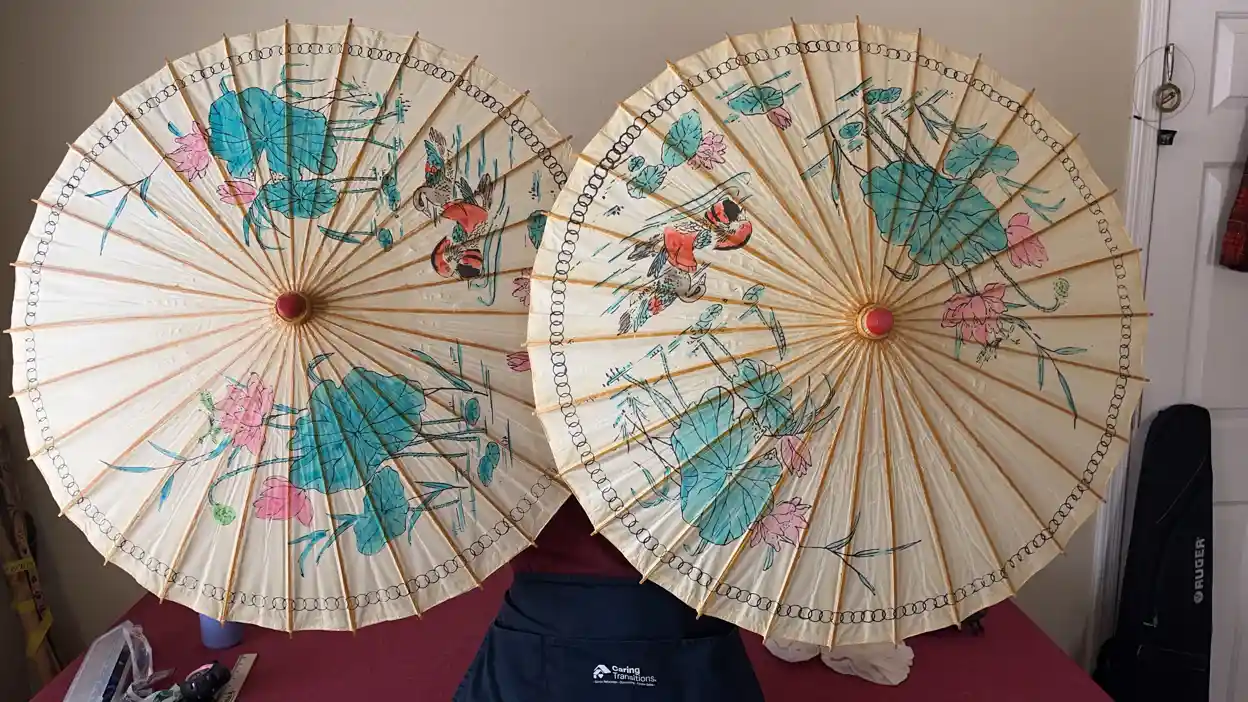 Caring
Transitions
RUGER